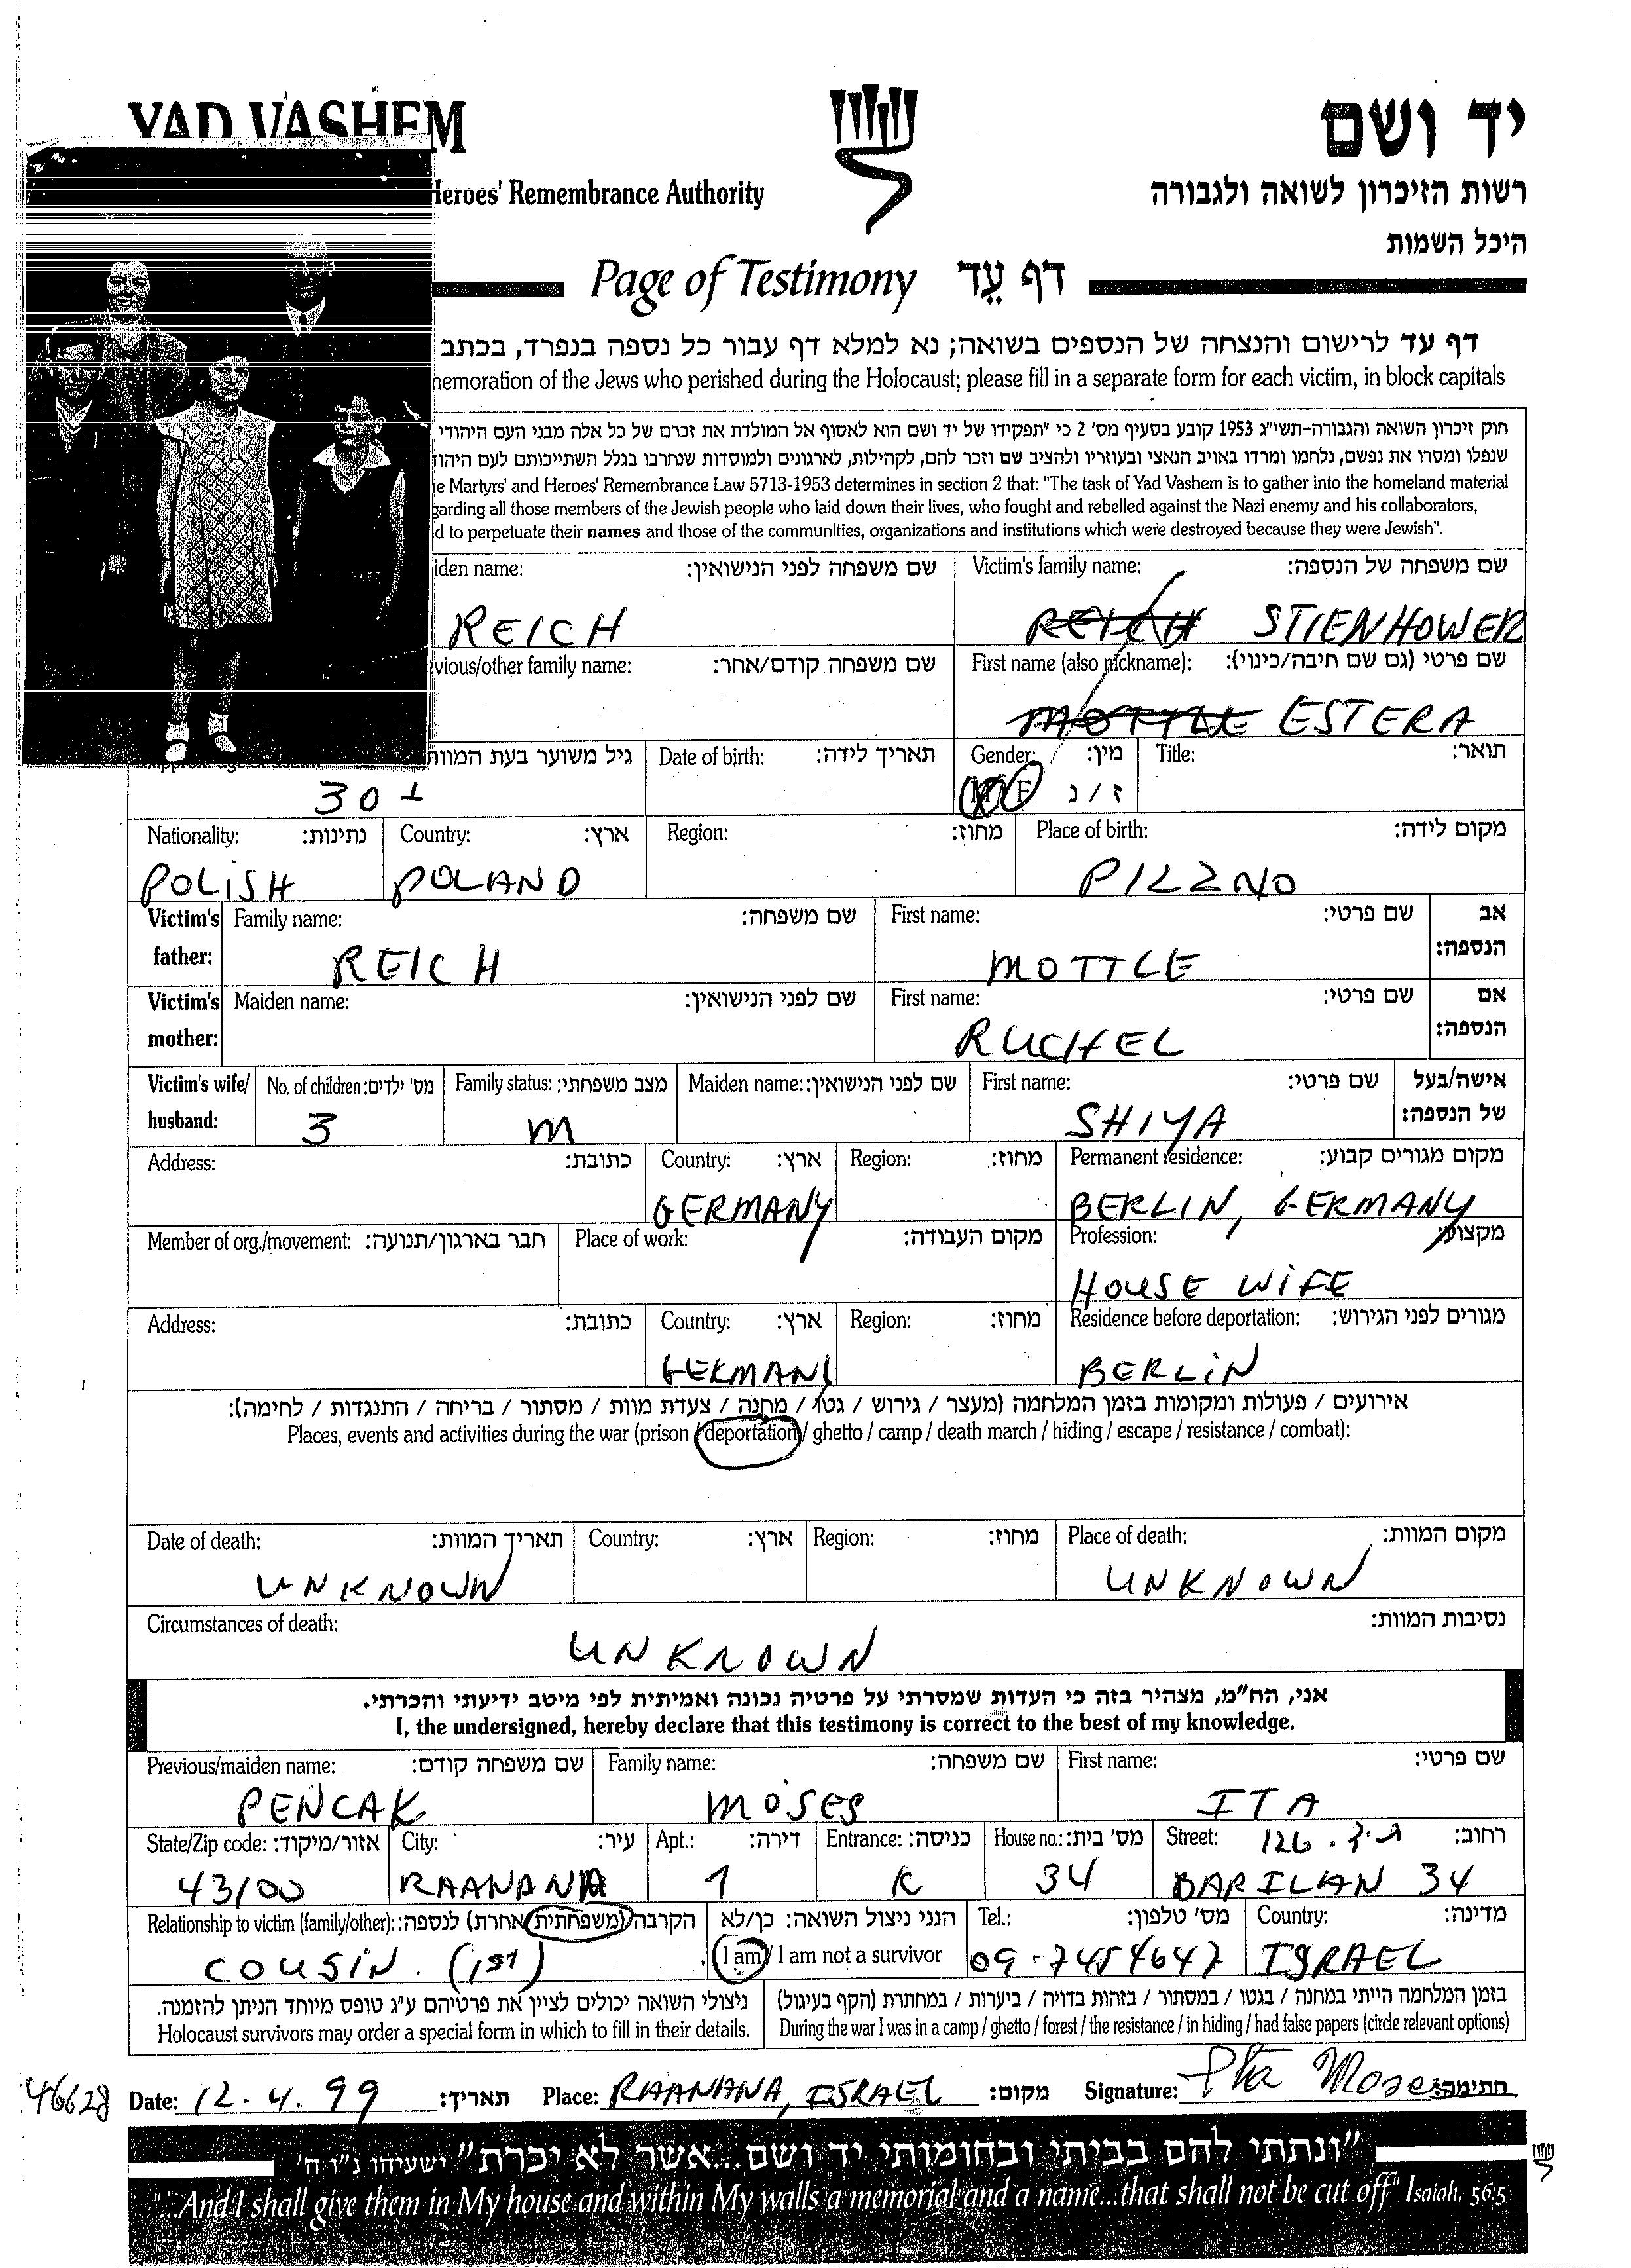 YAD VASHEM
יד ושם
Heroes' Remembrance Authority
רשות הזיכרון לשואה ולגבורה
היכל השמות
Page of Testimony דף עֵד
דף עד לרישום והנצחה של הנספים בשואה; נא למלא דף עבור כל נספה בנפרד, בכתב
memoration of the Jews who perished during the Holocaust; please fill in a separate form for each victim, in block capitals
חוק זיכרון השואה והגבורה-תשי"ג 1953 קובע בסעיף מס' 2 כי "תפקידו של יד ושם הוא לאסוף אל המולדת את זכרם של כל אלה מבני העם היהודי
שנפלו ומסרו את נפשם, נלחמו ומרדו באויב הנאצי ובעוזריו ולהציב שם וזכר להם, לקהילות, לארגונים ולמוסדות שנחרבו בגלל השתייכותם לעם היהוד
e Martyrs' and Heroes' Remembrance Law 5713-1953 determines in section 2 that: "The task of Yad Vashem is to gather into the homeland material
garding all those members of the Jewish people who laid down their lives, who fought and rebelled against the Nazi enemy and his collaborators,
d to perpetuate their names and those of the communities, organizations and institutions which were destroyed because they were Jewish".
iden name: שם משפחה לפני הנישואין: Victim's family name: שם משפחה של הנספה:
REICH REICH STIENHOWER
vious/other family name: שם משפחה קודם/אחר: First name (also nickname): שם פרטי (גם שם חיבה/כינוי):
MOTTLE ESTERA
גיל משוער בעת המוות Date of birth: תאריך לידה: Gender: מין: Title: תואר:
30 ± M/F ז/נ
Nationality: נתינות: Country: ארץ: Region: מחוז: Place of birth: מקום לידה:
POLISH POLAND PILZNO
Victim's father: Family name: שם משפחה: First name: שם פרטי: אב הנספה:
REICH MOTTLE
Victim's mother: Maiden name: שם לפני הנישואין: First name: שם פרטי: אם הנספה:
RUCHEL
Victim's wife/ husband: No. of children: מס' ילדים: Family status: מצב משפחתי: Maiden name: שם לפני הנישואין: First name: שם פרטי: אישה/בעל של הנספה:
3 M SHIYA
Address: כתובת: Country: ארץ: Region: מחוז: Permanent residence: מקום מגורים קבוע:
GERMANY BERLIN, GERMANY
Member of org./movement: חבר בארגון/תנועה: Place of work: מקום העבודה: Profession: מקצוע:
HOUSE WIFE
Address: כתובת: Country: ארץ: Region: מחוז: Residence before deportation: מגורים לפני הגירוש:
GERMANY BERLIN
אירועים / פעולות ומקומות בזמן המלחמה (מעצר / גירוש / גטו / מחנה / צעדת מוות / מסתור / בריחה / התנגדות / לחימה):
Places, events and activities during the war (prison / deportation / ghetto / camp / death march / hiding / escape / resistance / combat):
Date of death: תאריך המוות: Country: ארץ: Region: מחוז: Place of death: מקום המוות:
UNKNOWN UNKNOWN
Circumstances of death: נסיבות המוות:
UNKNOWN
אני, הח"מ, מצהיר בזה כי העדות שמסרתי על פרטיה נכונה ואמיתית לפי מיטב ידיעתי והכרתי.
I, the undersigned, hereby declare that this testimony is correct to the best of my knowledge.
Previous/maiden name: שם משפחה קודם: Family name: שם משפחה: First name: שם פרטי:
PENCAK MOSES ITA
State/Zip code: אזור/מיקוד: City: עיר: Apt.: דירה: Entrance: כניסה: House no.: מס' בית: Street: ת.ד. 126 רחוב:
43100 RAANANA 1 K 34 BARILAN 34
Relationship to victim (family/other): הקרבה (משפחתית/אחרת) לנספה: הנני ניצול השואה: כן/לא Tel.: מס' טלפון: Country: מדינה:
COUSIN. (1st) I am / I am not a survivor 09-7454647 ISRAEL
ניצולי השואה יכולים לציין את פרטיהם ע"ג טופס מיוחד הניתן להזמנה. בזמן המלחמה הייתי במחנה / בגטו / במסתור / בזהות בדויה / ביערות / במחתרת (הקף בעיגול)
Holocaust survivors may order a special form in which to fill in their details. During the war I was in a camp / ghetto / forest / the resistance / in hiding / had false papers (circle relevant options)
46628 Date: 12.4.99 תאריך: Place: RAANANA, ISRAEL מקום: Signature: Ita Moses חתימה:
"ונתתי להם בביתי ובחומותי יד ושם...אשר לא יכרת" ישעיהו נ"ו ה'
"...And I shall give them in My house and within My walls a memorial and a name...that shall not be cut off" Isaiah, 56:5